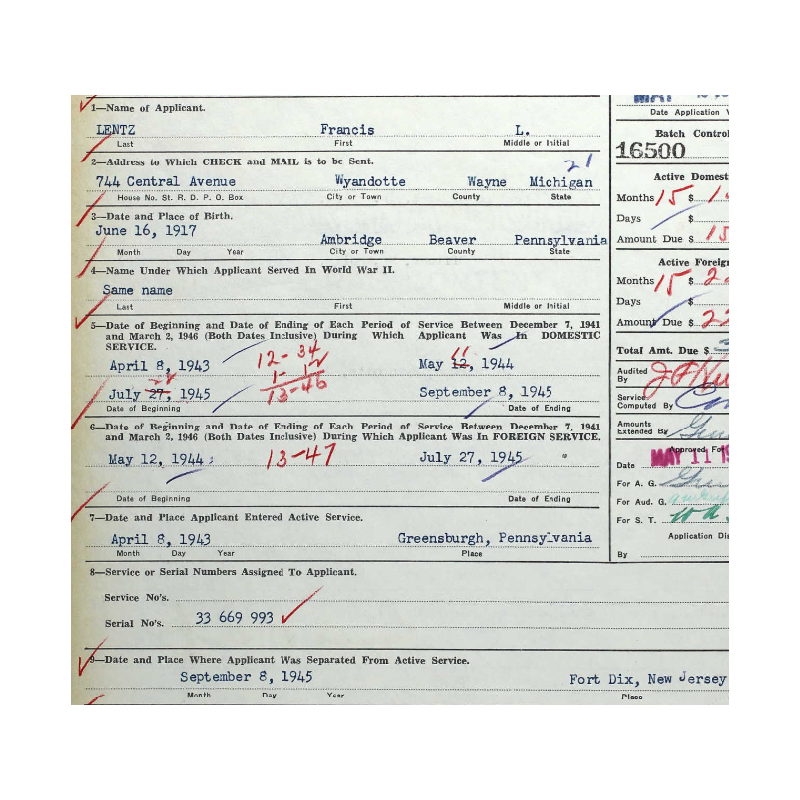 1—Name of Applicant.
LENTZ Francis L.
Last First Middle or Initial
2—Address to Which CHECK and MAIL is to be Sent.
21
744 Central Avenue Wyandotte Wayne Michigan
House No. St. R. D. P. O. Box City or Town County State
3—Date and Place of Birth.
June 16, 1917 Ambridge Beaver Pennsylvania
Month Day Year City or Town County State
4—Name Under Which Applicant Served In World War II.
Same name
Last First Middle or Initial
5—Date of Beginning and Date of Ending of Each Period of Service Between December 7, 1941
and March 2, 1946 (Both Dates Inclusive) During Which Applicant Was In DOMESTIC
SERVICE.
12-34 11
April 8, 1943 May 12, 1944
28 1-12
July 27, 1945 13-46 September 8, 1945
Date of Beginning Date of Ending
6—Date of Beginning and Date of Ending of Each Period of Service Between December 7, 1941
and March 2, 1946 (Both Dates Inclusive) During Which Applicant Was In FOREIGN SERVICE.
May 12, 1944 13-47 July 27, 1945
Date of Beginning Date of Ending
7—Date and Place Applicant Entered Active Service.
April 8, 1943 Greensburgh, Pennsylvania
Month Day Year Place
8—Service or Serial Numbers Assigned To Applicant.
Service No's.
Serial No's. 33 669 993
9—Date and Place Where Applicant Was Separated From Active Service.
September 8, 1945 Fort Dix, New Jersey
Month Day Year Place
MAY
Date Application
Batch Control
16500
Active Domest
Months 15 $
Days $
Amount Due $ 15
Active Foreig
Months 15 $ 2
Days $
Amount Due $ 22
Total Amt. Due $
Audited
By
Service
Computed By
Amounts
Extended By
Approved For
Date MAY 11
For A. G.
For Aud. G.
For S. T.
Application Dis
By